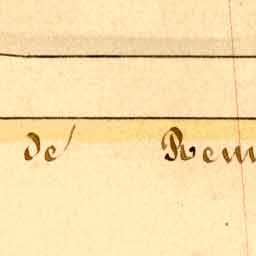 de Rem